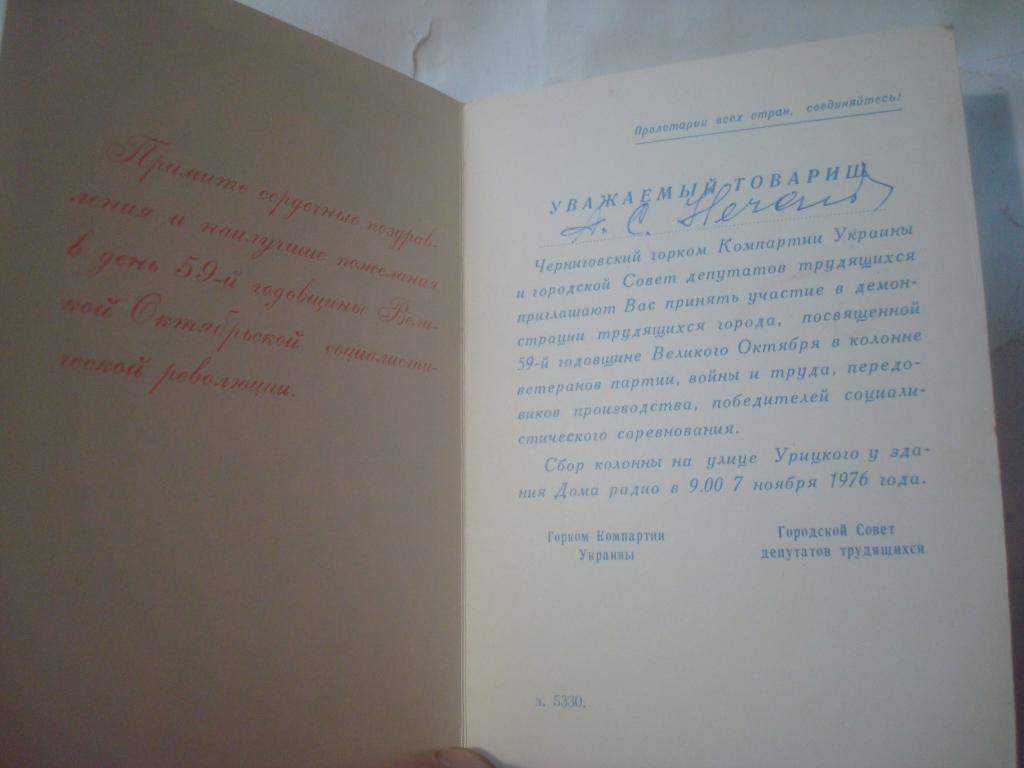 Примите сердечные поздрав-
ления и наилучшие пожелания
в день 59-й годовщины Вели-
кой Октябрьской социалисти-
ческой революции.
Пролетарии всех стран, соединяйтесь!
УВАЖАЕМЫЙ ТОВАРИЩ
А. С.
Черниговский горком Компартии Украины
и городской Совет депутатов трудящихся
приглашают Вас принять участие в демон-
страции трудящихся города, посвященной
59-й годовщине Великого Октября в колонне
ветеранов партии, войны и труда, передо-
виков производства, победителей социали-
стического соревнования.
Сбор колонны на улице Урицкого у зда-
ния Дома радио в 9.00 7 ноября 1976 года.
Горком Компартии
Украины
Городской Совет
депутатов трудящихся
з. 5330.